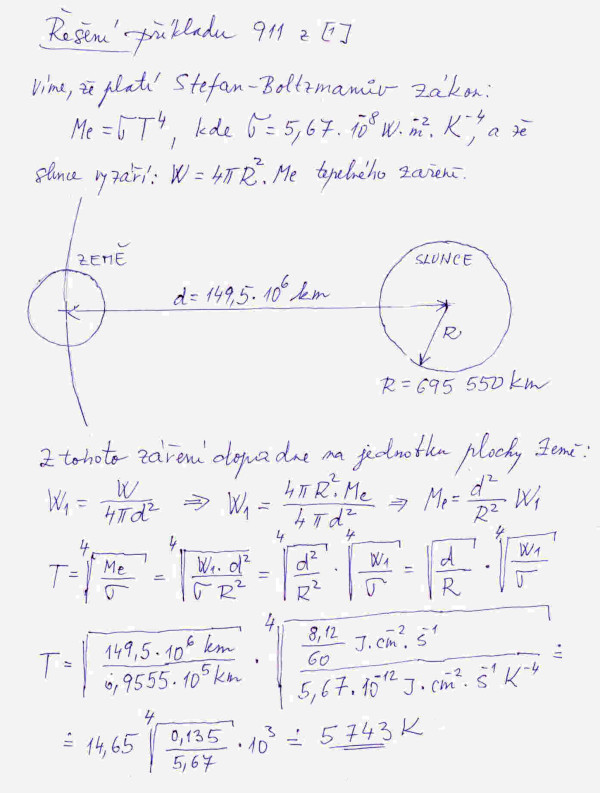 Řešení příkladu 911 z [1]
víme, že platí Stefan-Boltzmanův zákon:
Me = σT⁴, kde σ = 5,67 · 10⁻⁸ W · m⁻² · K⁻⁴, a že
slunce vyzáří: W = 4πR² · Me tepelného záření.
ZEMĚ
SLUNCE
d = 149,5 · 10⁶ km
R
R = 695 550 km
Z tohoto záření dopadne na jednotku plochy Země:
W₁ = W/4πd² ⇒ W₁ = 4πR² · Me/4πd² ⇒ Me = d²/R² W₁
T = ⁴√(Me/σ) = ⁴√(W₁ · d²/σ R²) = ⁴√(d²/R²) · ⁴√(W₁/σ) = √(d/R) · ⁴√(W₁/σ)
T = √(149,5 · 10⁶ km/6,9555 · 10⁵ km) · ⁴√(8,12/60 J · cm⁻² · s⁻¹/5,67 · 10⁻¹² J · cm⁻² · s⁻¹ K⁻⁴) ≐
≐ 14,65 ⁴√(0,135/5,67) · 10³ ≐ 5 743 K